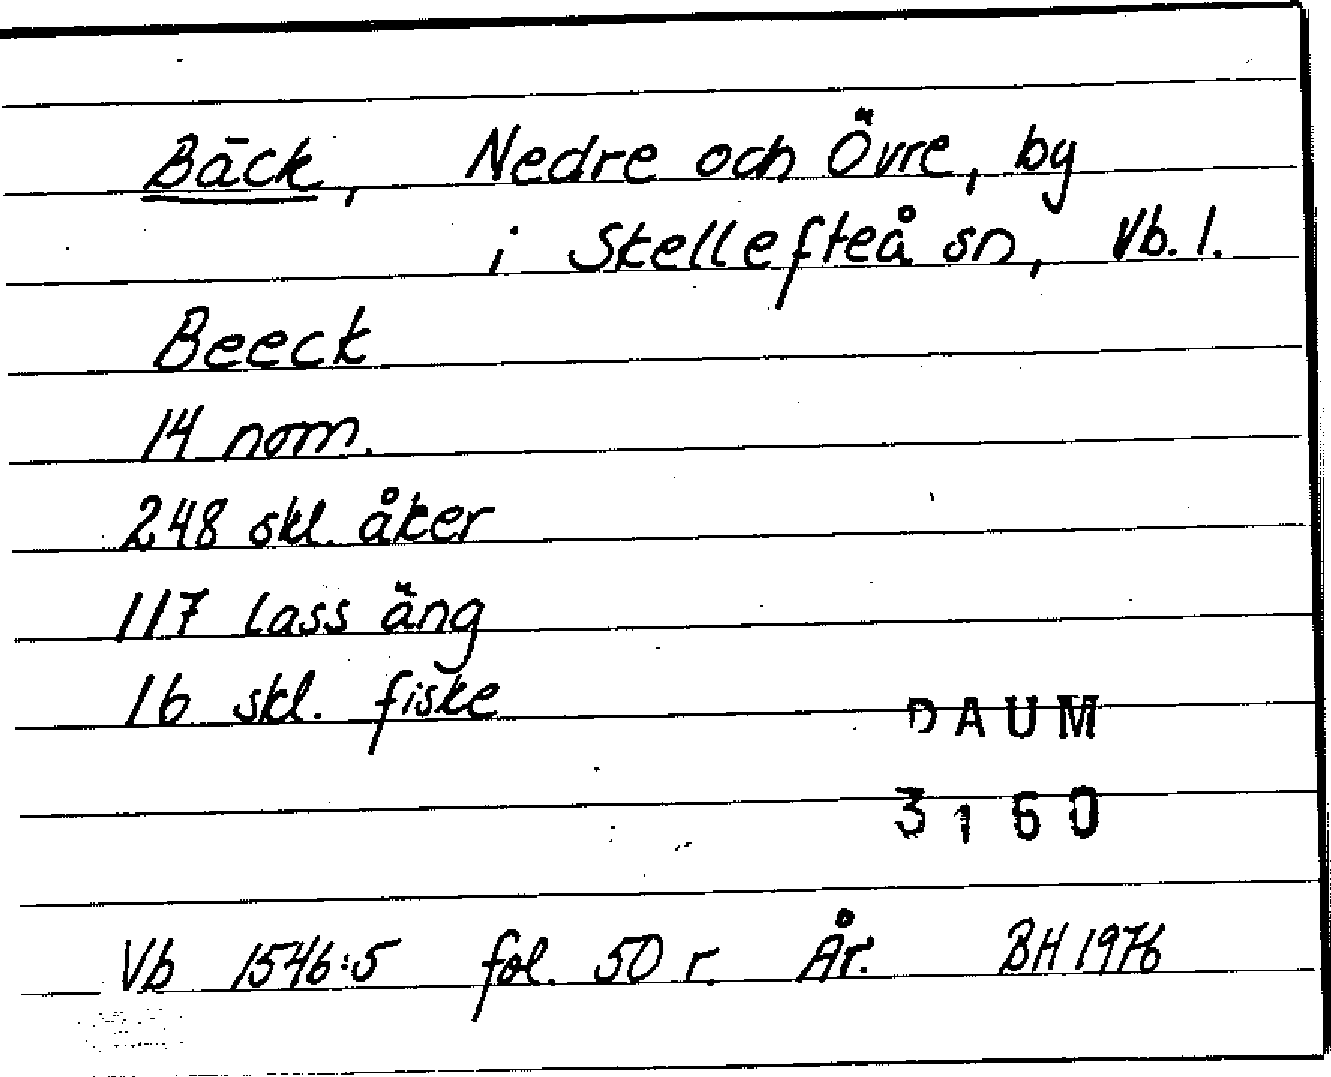 Bäck, Nedre och Övre, by
i Skellefteå sn, Vb. l.
Beeck
14 nom.
248 skl. åker
117 lass äng
16 skl. fiske
DAUM
3160
Vb 1546:5 fol. 50 r. År. BH 1976